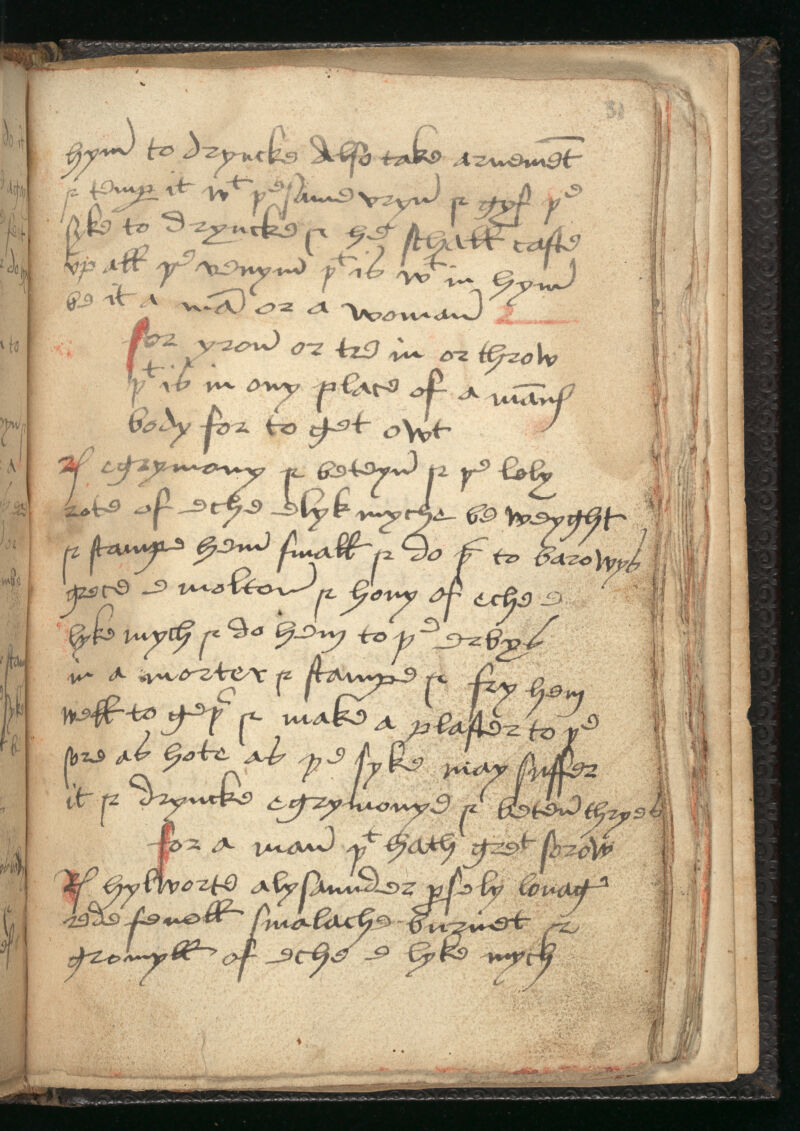 31
hym to dryncke Also take arnemēt
& temp it wt þe same vryn & gyf þe
syke to dryncke & he schall caste
vp all þe venym þt is wt in hym
be it a mā or a woman
for yron or tre in or throw
þt is in ony place of a mānes
body for to get owt
R egrymony & beteyn & þe lely
rote of eche elyk myche be weyght
& stampe hem small & do þ to barowys
grece e molton & hony of eche e
lyke mych & do hem to þe erbys
in a morter & stampe & fry hem
well to geþr & make a plaster to þe
sore as hote as þe syke may suffer
it & dryncke egrymonye & beten thryes
for a man þt hath gret sorow
R hylworte alysaunder psely louage
rede fenell smalache burnet &
gromyll of eche e lyke mych